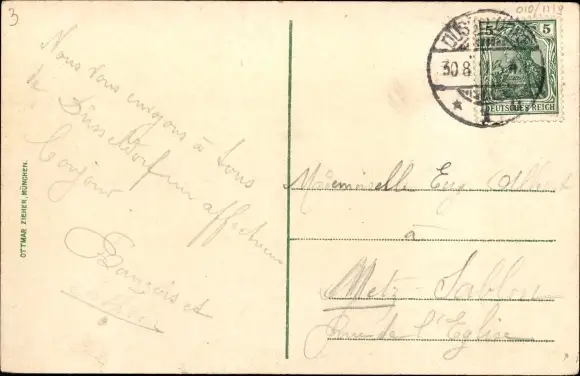 3
010/119
DÜSSELDORF
30.8
5 5
DEUTSCHES REICH
Nous vous envoyons à tous
de Düsseldorf un affectueux
bonjour
François et
Mademoiselle Eug. Albert
à
Metz-Sablon
Rue de l'Eglise
OTTMAR ZIEHER, MÜNCHEN.